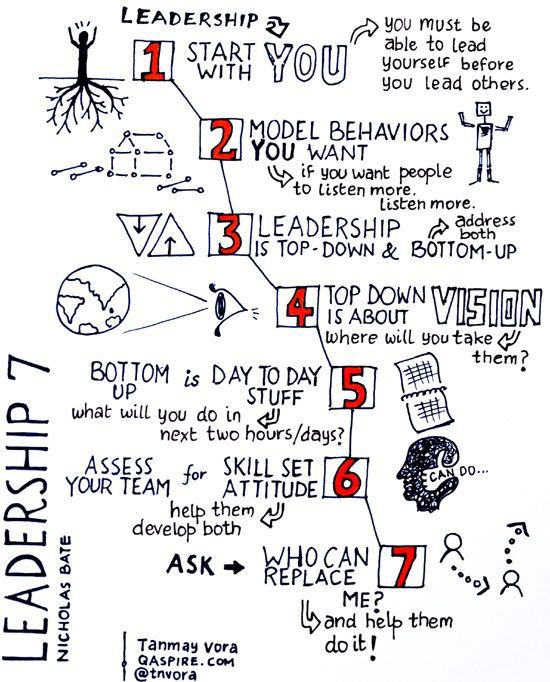 LEADERSHIP
1 START WITH YOU
you must be
able to lead
yourself before
you lead others.
2 MODEL BEHAVIORS
YOU WANT
if you want people
to listen more,
listen more.
3 LEADERSHIP
IS TOP-DOWN & BOTTOM-UP
address
both
4 TOP DOWN
IS ABOUT VISION
where will you take
them?
5 BOTTOM UP is DAY TO DAY
STUFF
what will you do in
next two hours/days?
6 ASSESS
YOUR TEAM for SKILL SET
ATTITUDE
help them
develop both
CAN DO...
7 ASK WHO CAN
REPLACE
ME?
and help them
do it!
LEADERSHIP 7
NICHOLAS BATE
Tanmay Vora
QASPIRE.COM
@tnvora